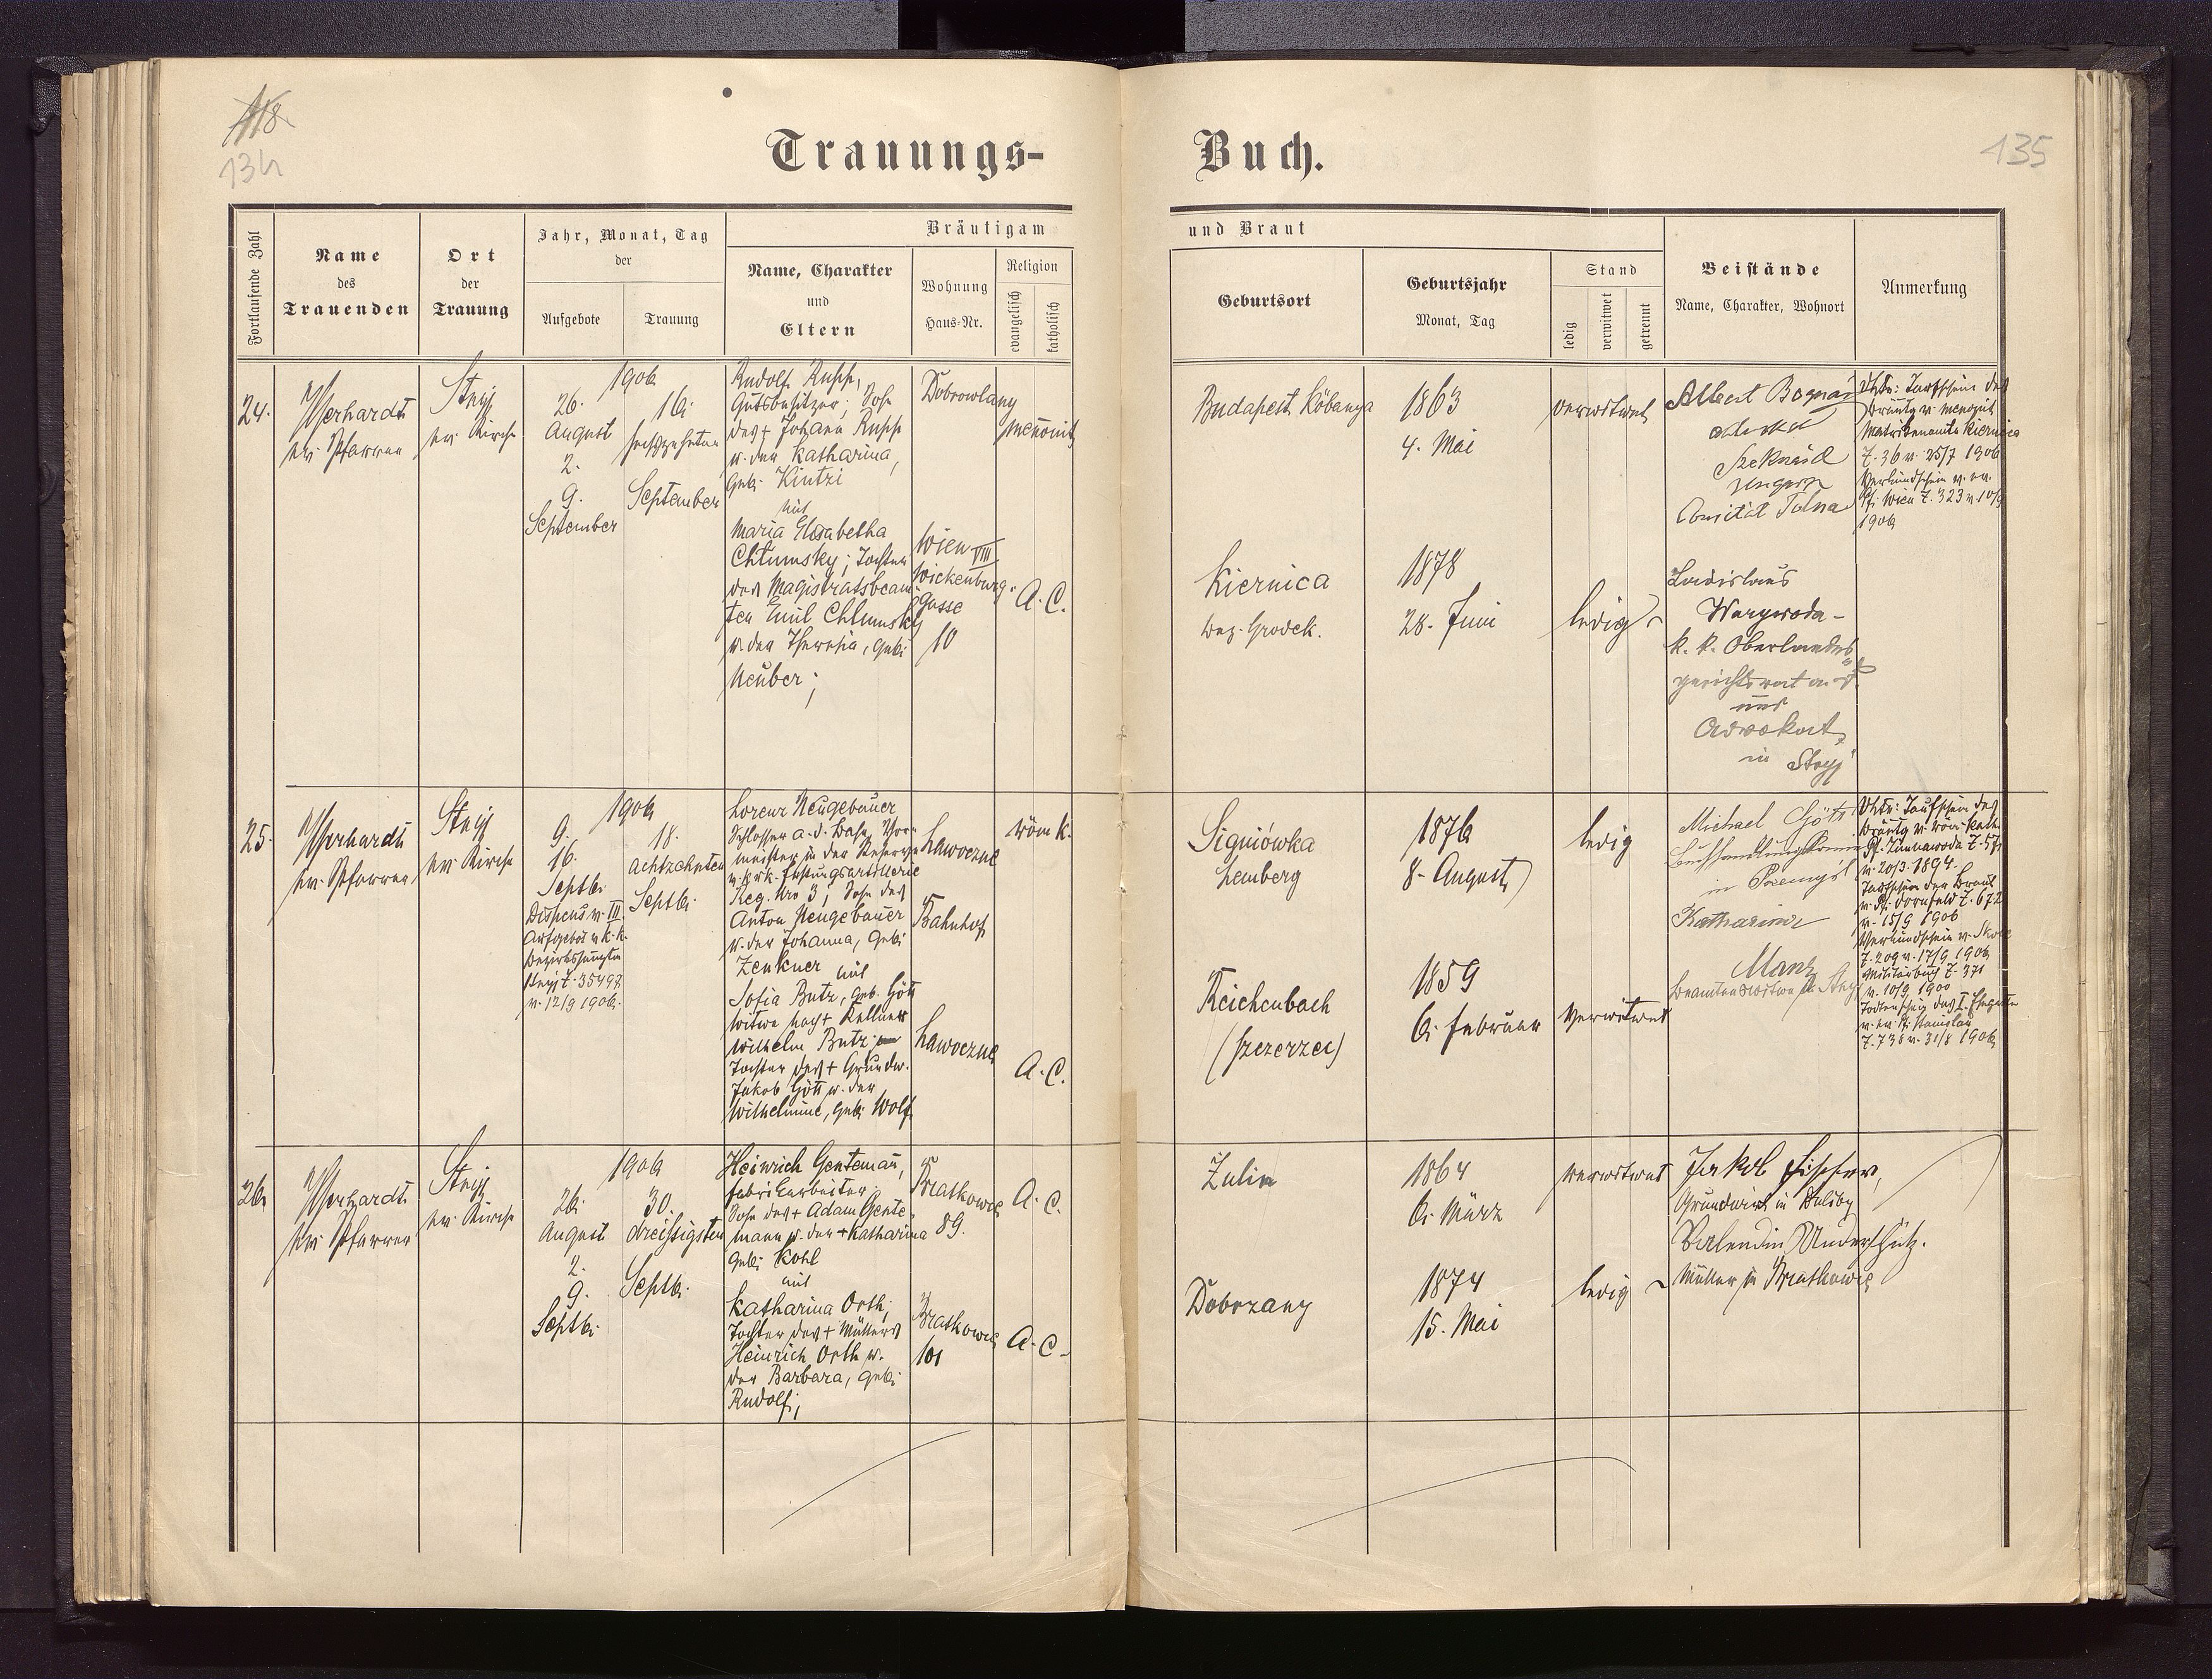 118.
134
135
Trauungs-
Buch.
Fortlaufende Zahl
Name
des
Trauenden
Ort
der
Trauung
Jahr, Monat, Tag
der
Aufgebote
Trauung
Bräutigam
und Braut
Name, Charakter
und
Eltern
Wohnung
Haus-Nr.
Religion
evangelisch
katholisch
Geburtsort
Geburtsjahr
Monat, Tag
Stand
ledig
verwitwet
getrennt
Beistände
Name, Charakter, Wohnort
Anmerkung
24.
ev. Pfarrer
Stryj
ev. Kirche
1906
26.
August
2.
9.
September
16.
sechzehnten
September
Rudolf Rupp,
Gutsbesitzer; Sohn
des + Johann Rupp
u. der Katharina,
geb. Kintzi
mit
Maria Elisabetha
Chlumsky; Tochter
des Magistratsbeam-
ten Emil Chlumsky
u. der Theresia, geb.
Neuber;
Dobrowlany
menonit.
Wien VIII
Wickenburg-
Gasse
10
A. C.
Budapest Köbanya
1863
4. Mai
verwitwet
Kiernica
Bez. Grodek.
1878
28. Juni
ledig
Albert
Ungarn
Comitat Tolna
Ladislaus
k. k. Oberlandes
gerichtsrat a. D.
und
Advokat
in Stryj
Taufschein des
Bräutig. v. menonit.
Matrikenamte Kiernica
Z. 36 v. 25/7 1906
Verkündschein v. ev.
Pf. Wien Z. 323 v. 10/9
1906
25.
ev. Pfarrer
Stryj
ev. Kirche
1906
9.
16.
Septb.
Dispens v. III.
Aufgebot v. k. k.
Stryj Z. 35498
v. 12/9 1906.
18.
achtzehnten
Septb.
Lorenz Neugebauer
Schlosser a. d. Bahn, Vor-
meister in der Reserve
v. k. u. k. Festungsartillerie
Reg. Nro 3; Sohn des
Anton Neugebauer
u. der Johanna, geb.
Zenkner mit
Sofia Butz, geb. Gött
Witwe nach + Kellner
Wilhelm Butz
Tochter des + Grundw.
Jakob Gött u. der
Wilhelmine, geb. Wolf
Lawoczne
Bahnhof
röm. k.
Lawoczne
A. C.
Signiówka
Lemberg
1876
8. August
ledig
Reichenbach
(Szczerzec)
1859
6. Februar
verwitwet
Michael
in Przemyśl
Katharina
Manz
Taufschein des
Bräutig. v. röm. kath.
v. 20/3. 1894.
Taufschein der Braut
v. Pf. Dornfeld Z. 672
v. 15/9 1906
Verkündschein v. Skole
Z. 209 v. 17/9 1906
Z. 371
v. 10/9 1900
v. ev. Pf. Stanislau
Z. 738 v. 31/8 1906
26.
ev. Pfarrer
Stryj
ev. Kirche
1906
26.
August
2.
9.
Septb.
30.
dreißigsten
Septb.
Heinrich Gentemann,
Fabriksarbeiter;
Sohn des + Adam Gente-
mann u. der + Katharina
geb. Kohl
mit
Katharina Orth;
Tochter des + Müllers
Heinrich Orth u.
der Barbara, geb.
Rudolf;
Bratkowce
89.
A. C.
Bratkowce
101
A. C.
Zulin
1864
6. März
verwitwet
Dobrzany
1874
15. Mai
ledig
Jakob Fischer,
Grundwirt in Duliby
Müller in Bratkowce